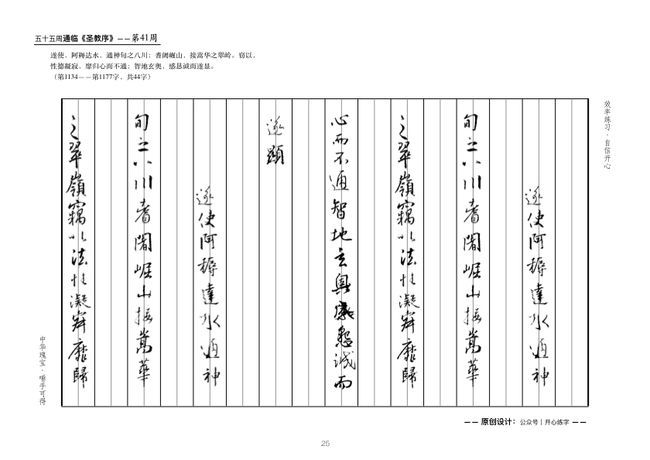 五十五周通临《圣教序》——第41周
遂使，阿耨达水，通神甸之八川；耆阇崛山，接嵩华之翠岭。窃以，
性德凝寂，靡归心而不通；智地玄奥，感恳诚而遂显。
（第1134——第1177字，共44字）
效率练习·自信开心
遂使阿耨達水通神
甸之八川耆闍崛山接嵩華
之翠嶺竊以法性凝寂靡歸
心而不通智地玄奧感懇誠而
遂顯
遂使阿耨達水通神
甸之八川耆闍崛山接嵩華
之翠嶺竊以法性凝寂靡歸
中华瑰宝·唾手可得
—— 原创设计：公众号｜开心练字 ——
25